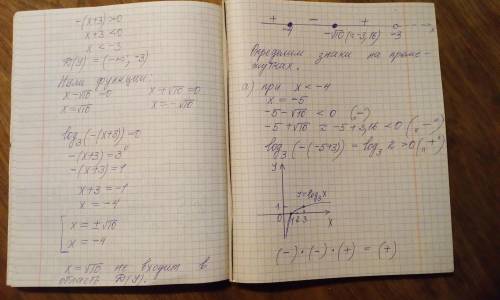 -(x+3)>0
x+3<0
x<-3
D(y)=(-∞; -3)
Нули функции:
x-√10=0   x+√10=0
x=√10   x=-√10
log₃(-(x+3))=0
-(x+3)=3⁰
-(x+3)=1
x+3=-1
x=-4
[ x=±√10
x=-4
x=√10 не входит в
область D(y).
+   -   +
-4   -√10(≈-3,16)   -3   x
Определим знаки на проме-
жутках.
а) при x<-4
x=-5
-5-√10<0 („-")
-5+√10≈-5+3,16<0 („-")
log₃(-(-5+3))=log₃2>0 („+")
y
y=log₃x
1
0 1 2 3 x
(-)·(-)·(+)=(+)